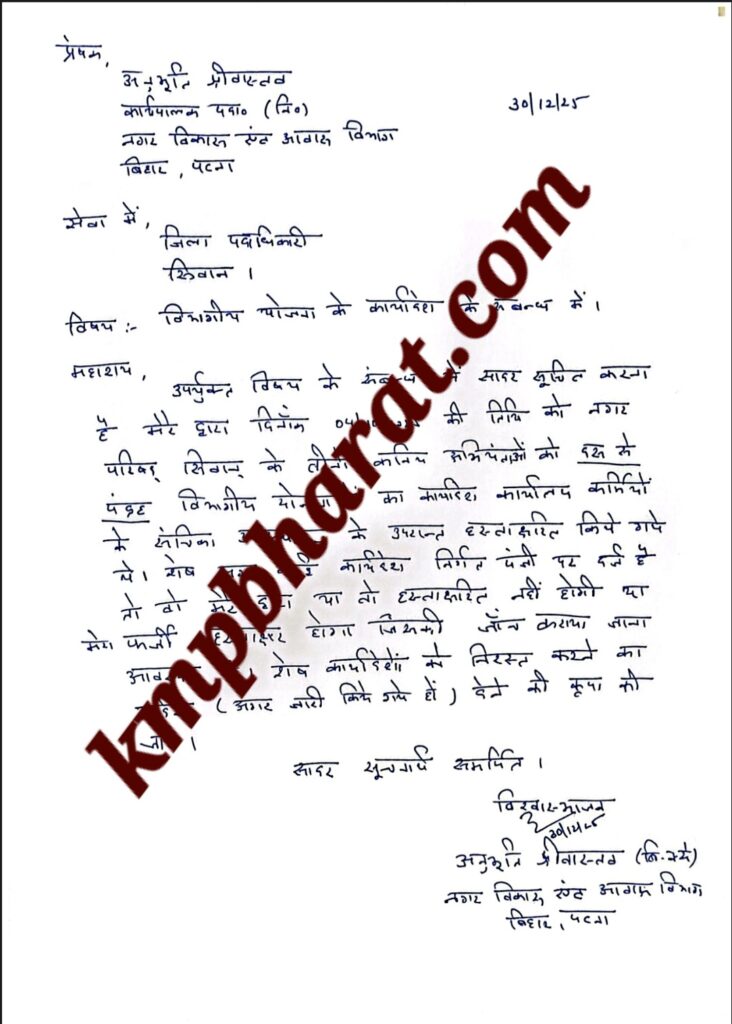 प्रेषक,
अनुभूति श्रीवास्तव
कार्यपालक पदा० (नि०)
30/12/25
नगर विकास एवं आवास विभाग
बिहार, पटना
सेवा में,
जिला पदाधिकारी
सिवान ।
विषय :- विभागीय योजना के कार्यादेश के संबन्ध में ।
महाशय,
उपर्युक्त विषय के संबन्ध में सादर सूचित करना
है मेरे द्वारा दिनाँक की तिथि को नगर
परिषद् सिवान के तीनों कनिय अभियंताओं को दस से
पंद्रह विभागीय का कार्यादेश कार्यालय कर्मियों
के संचिका के उपरान्त हस्ताक्षरित किये गये
थे। शेष कार्यादेश निर्गत पंजी पर दर्ज है
तो वो मेरे द्वारा या तो हस्ताक्षरित नहीं होगी या
मेरा फर्जी हस्ताक्षर होगा जिसकी जाँच कराया जाना
शेष कार्यादेशों को निरस्त करने का
(अगर जारी किये गये हों) देने की कृपा की
सादर सूचनार्थ समर्पित ।
विश्वास-भाजन
30/12/25
अनुभूति श्रीवास्तव (नि.)
नगर विकास एवं आवास विभाग
बिहार, पटना
kmpbharat.com